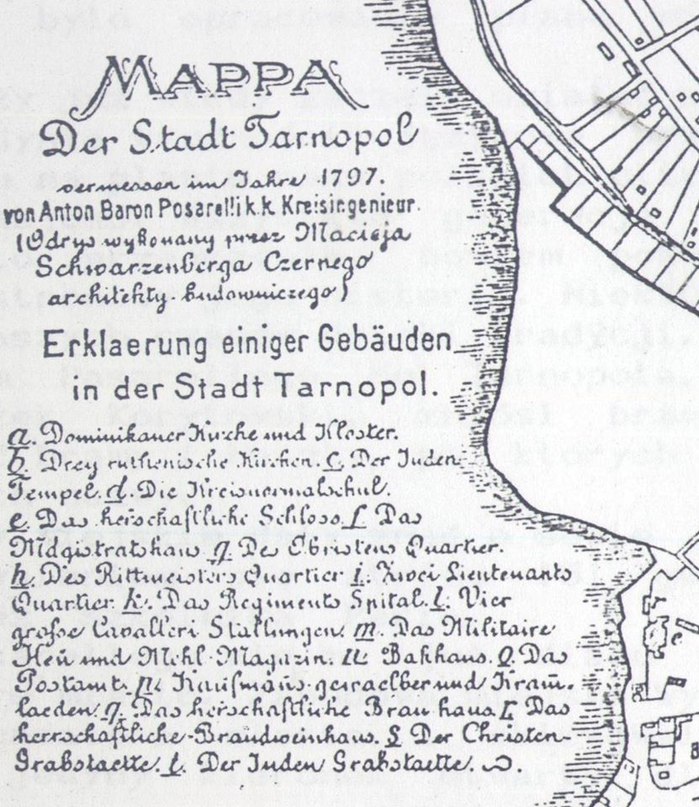 MAPPA
Der Stadt Tarnopol
vermessen im Jahre 1797.
von Anton Baron Posarelli k.k. Kreisingenieur.
(Odrys wykonany przez Macieja
Schwarzenberga Czernego
architekty-budowniczego)
Erklaerung einiger Gebäuden
in der Stadt Tarnopol.
a. Dominikaner Kirche und Kloster.
b. Drey ruthenische Kirchen. c. Der Juden
Tempel. d. Die Kreisnormalschul.
e. Das herschaftliche Schloss. f. Das
Magistratshaus g. Des Obristens Quartier.
h. Des Rittmeisters Quartier i. Zwei Lieutenants
Quartier. k. Das Regiments Spital. l. Vier
große Cavalleri Stallungen. m. Das Militaire
Heu und Mehl-Magazin. n. Bakhaus. o. Das
Postamt. p. Kaufmans-gewaelber und Kram-
laeden. q. Das herschaftliche Brauhaus r. Das
herrschaftliche-Brandweinhaus. s. Der Christen-
Grabstaette. t. Der Juden Grabstaette.
e